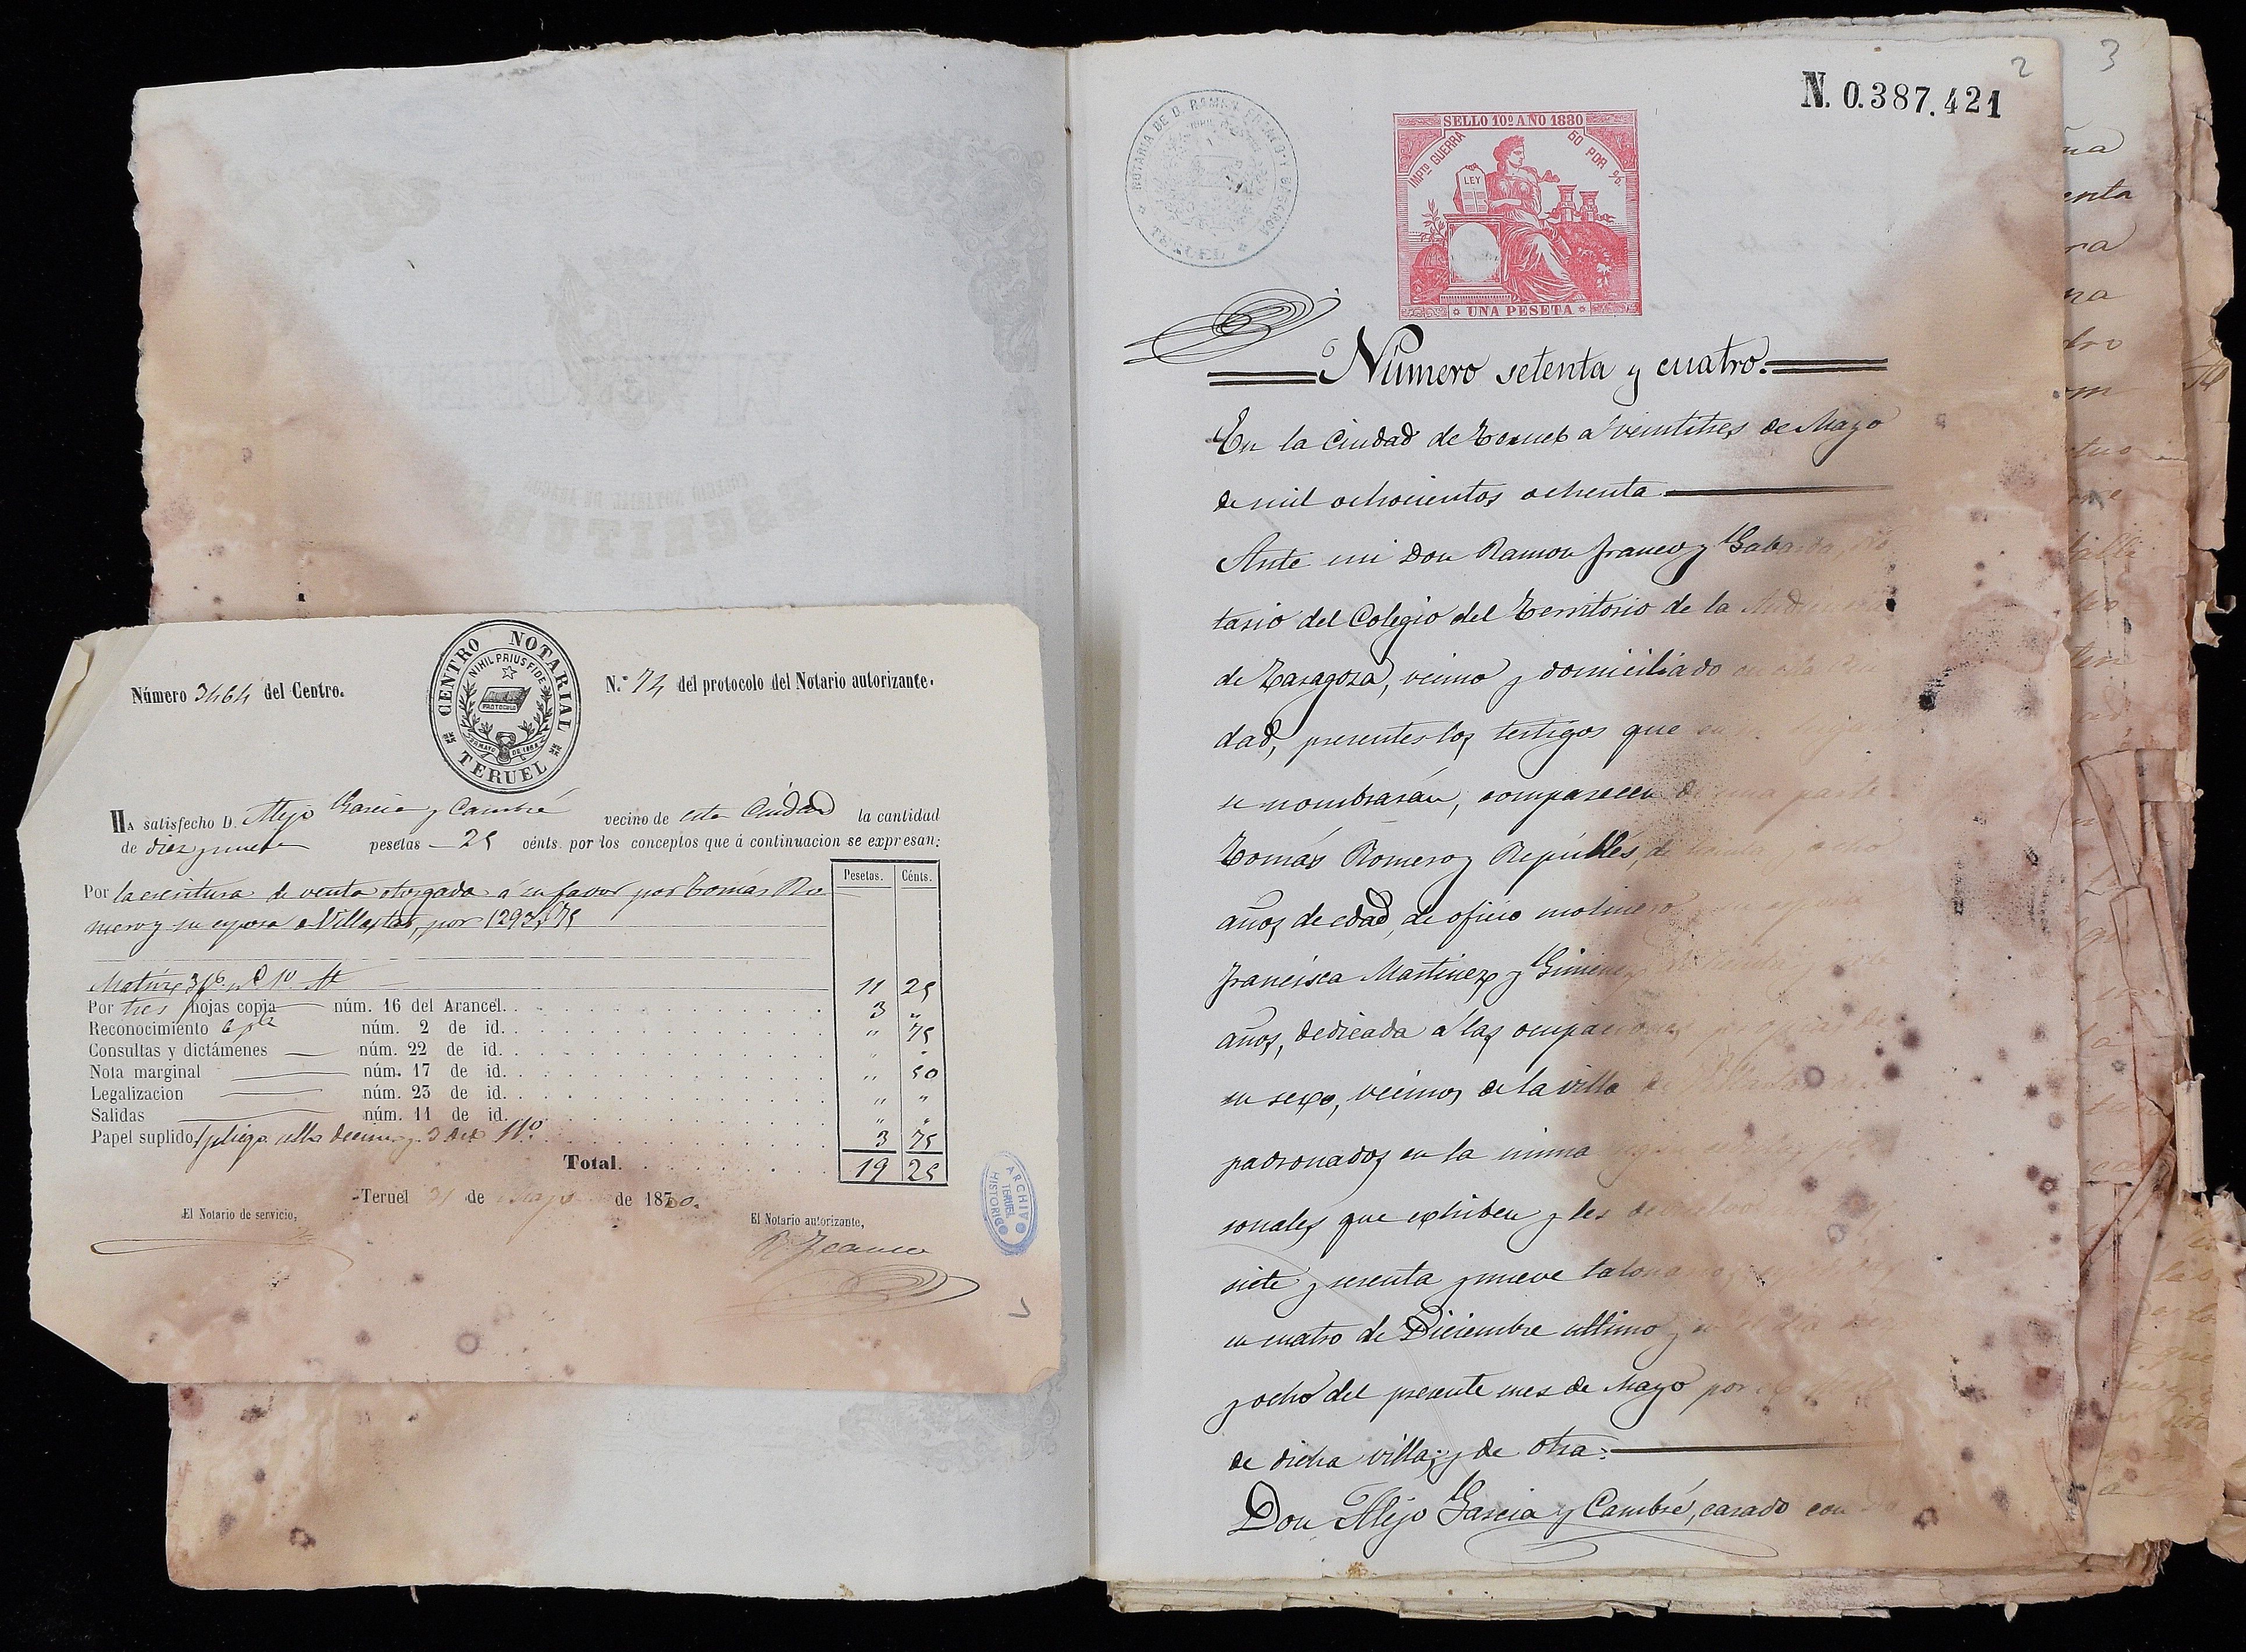 CENTRO NOTARIAL
NIHIL PRIUS FIDE
PROTOCOLO
TERUEL
Número 3464 del Centro.
N.º 74 del protocolo del Notario autorizante.
HA satisfecho D. Alejo Garcia y Cambré vecino de esta Ciudad la cantidad
de diez y nueve pesetas 25 cénts. por los conceptos que á continuacion se expresan:
Pesetas. Cénts.
Por la escritura de venta otorgada á su favor por Tomás Ro
mero y su esposa Villastar, por 1293,75
Matriz 11 25
Por tres hojas copia núm. 16 del Arancel. 3 "
Reconocimiento núm. 2 de id. " 75
Consultas y dictámenes núm. 22 de id. " "
Nota marginal núm. 17 de id. " 50
Legalizacion núm. 23 de id. " "
Salidas núm. 11 de id. " "
Papel suplido 1 pliego sello decimo y 3 del 11º 3 75
Total. 19 25
Teruel 31 de Mayo de 1880.
El Notario de servicio,
El Notario autorizante,
R. Franco
ARCHIVO HISTORICO TERUEL
2
3
N. 0.387.421
NOTARIA DE D. RAMON FRANCO Y GABARDA
TERUEL
SELLO 10º AÑO 1880
IMPTO GUERRA 50 POR %
LEY
UNA PESETA
Número setenta y cuatro.
En la Ciudad de Teruel a veintitres de Mayo
de mil ochocientos ochenta
Ante mi Don Ramon Franco y Gabarda, No
tario del Colegio del Territorio de la Audiencia
de Zaragoza, vecino y domiciliado en esta Ciu
dad, presentes los testigos que
se nombrarán, comparecen de una parte
Tomás Romero y Repullés, de treinta y ocho
años de edad, de oficio molinero y su esposa
Francisca Martinez y Gimenez de treinta y
años, dedicada á las ocupaciones propias de
su sexo, vecinos de la villa de Villastar
padronados en la misma segun cedulas per
sonales que exhiben y les devuelvo
siete y sesenta y nueve talonarios
en cuatro de Diciembre ultimo y en el dia
y ocho del presente mes de Mayo por
de dicha villa; y de otra:
Don Alejo Garcia y Cambré, casado con